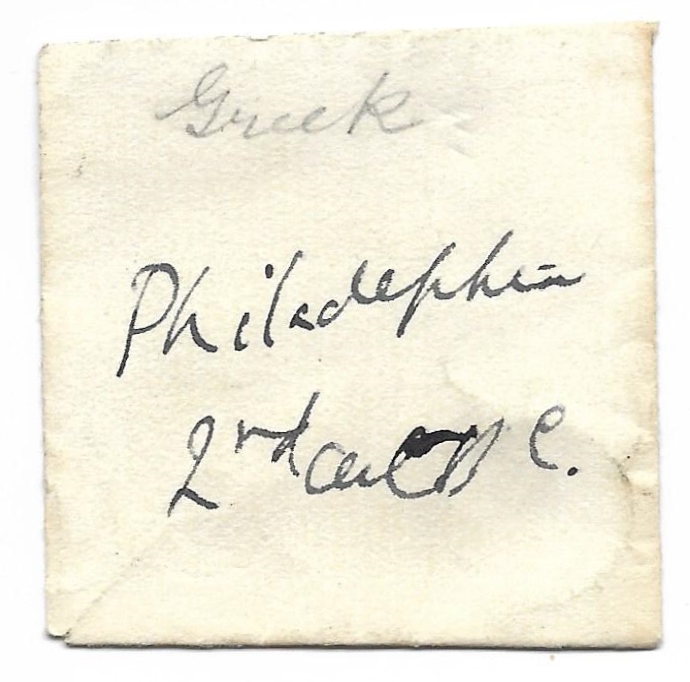 Greek
Philadelphia
2nd cent B C.